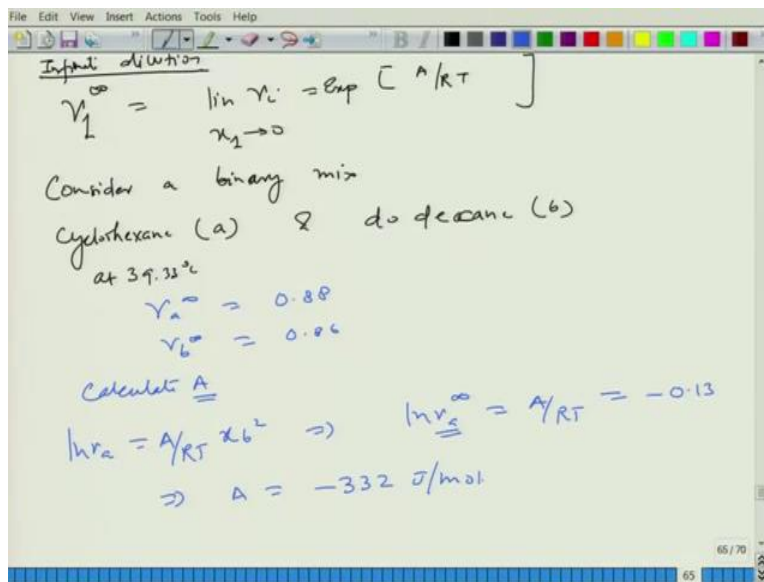 File Edit View Insert Actions Tools Help
Infinit dilution
γ₁^∞ = lin γᵢ = Exp [ A/RT ]
x₁→0
Consider a binary mix
Cyclohexane (a) & do decane (b)
at 39.33°C
γₐ^∞ = 0.88
γ_b^∞ = 0.86
Calculate A
lnγₐ = A/RT x_b² ⇒ lnγₐ^∞ = A/RT = -0.13
⇒ A = -332 J/mol
65/70
65